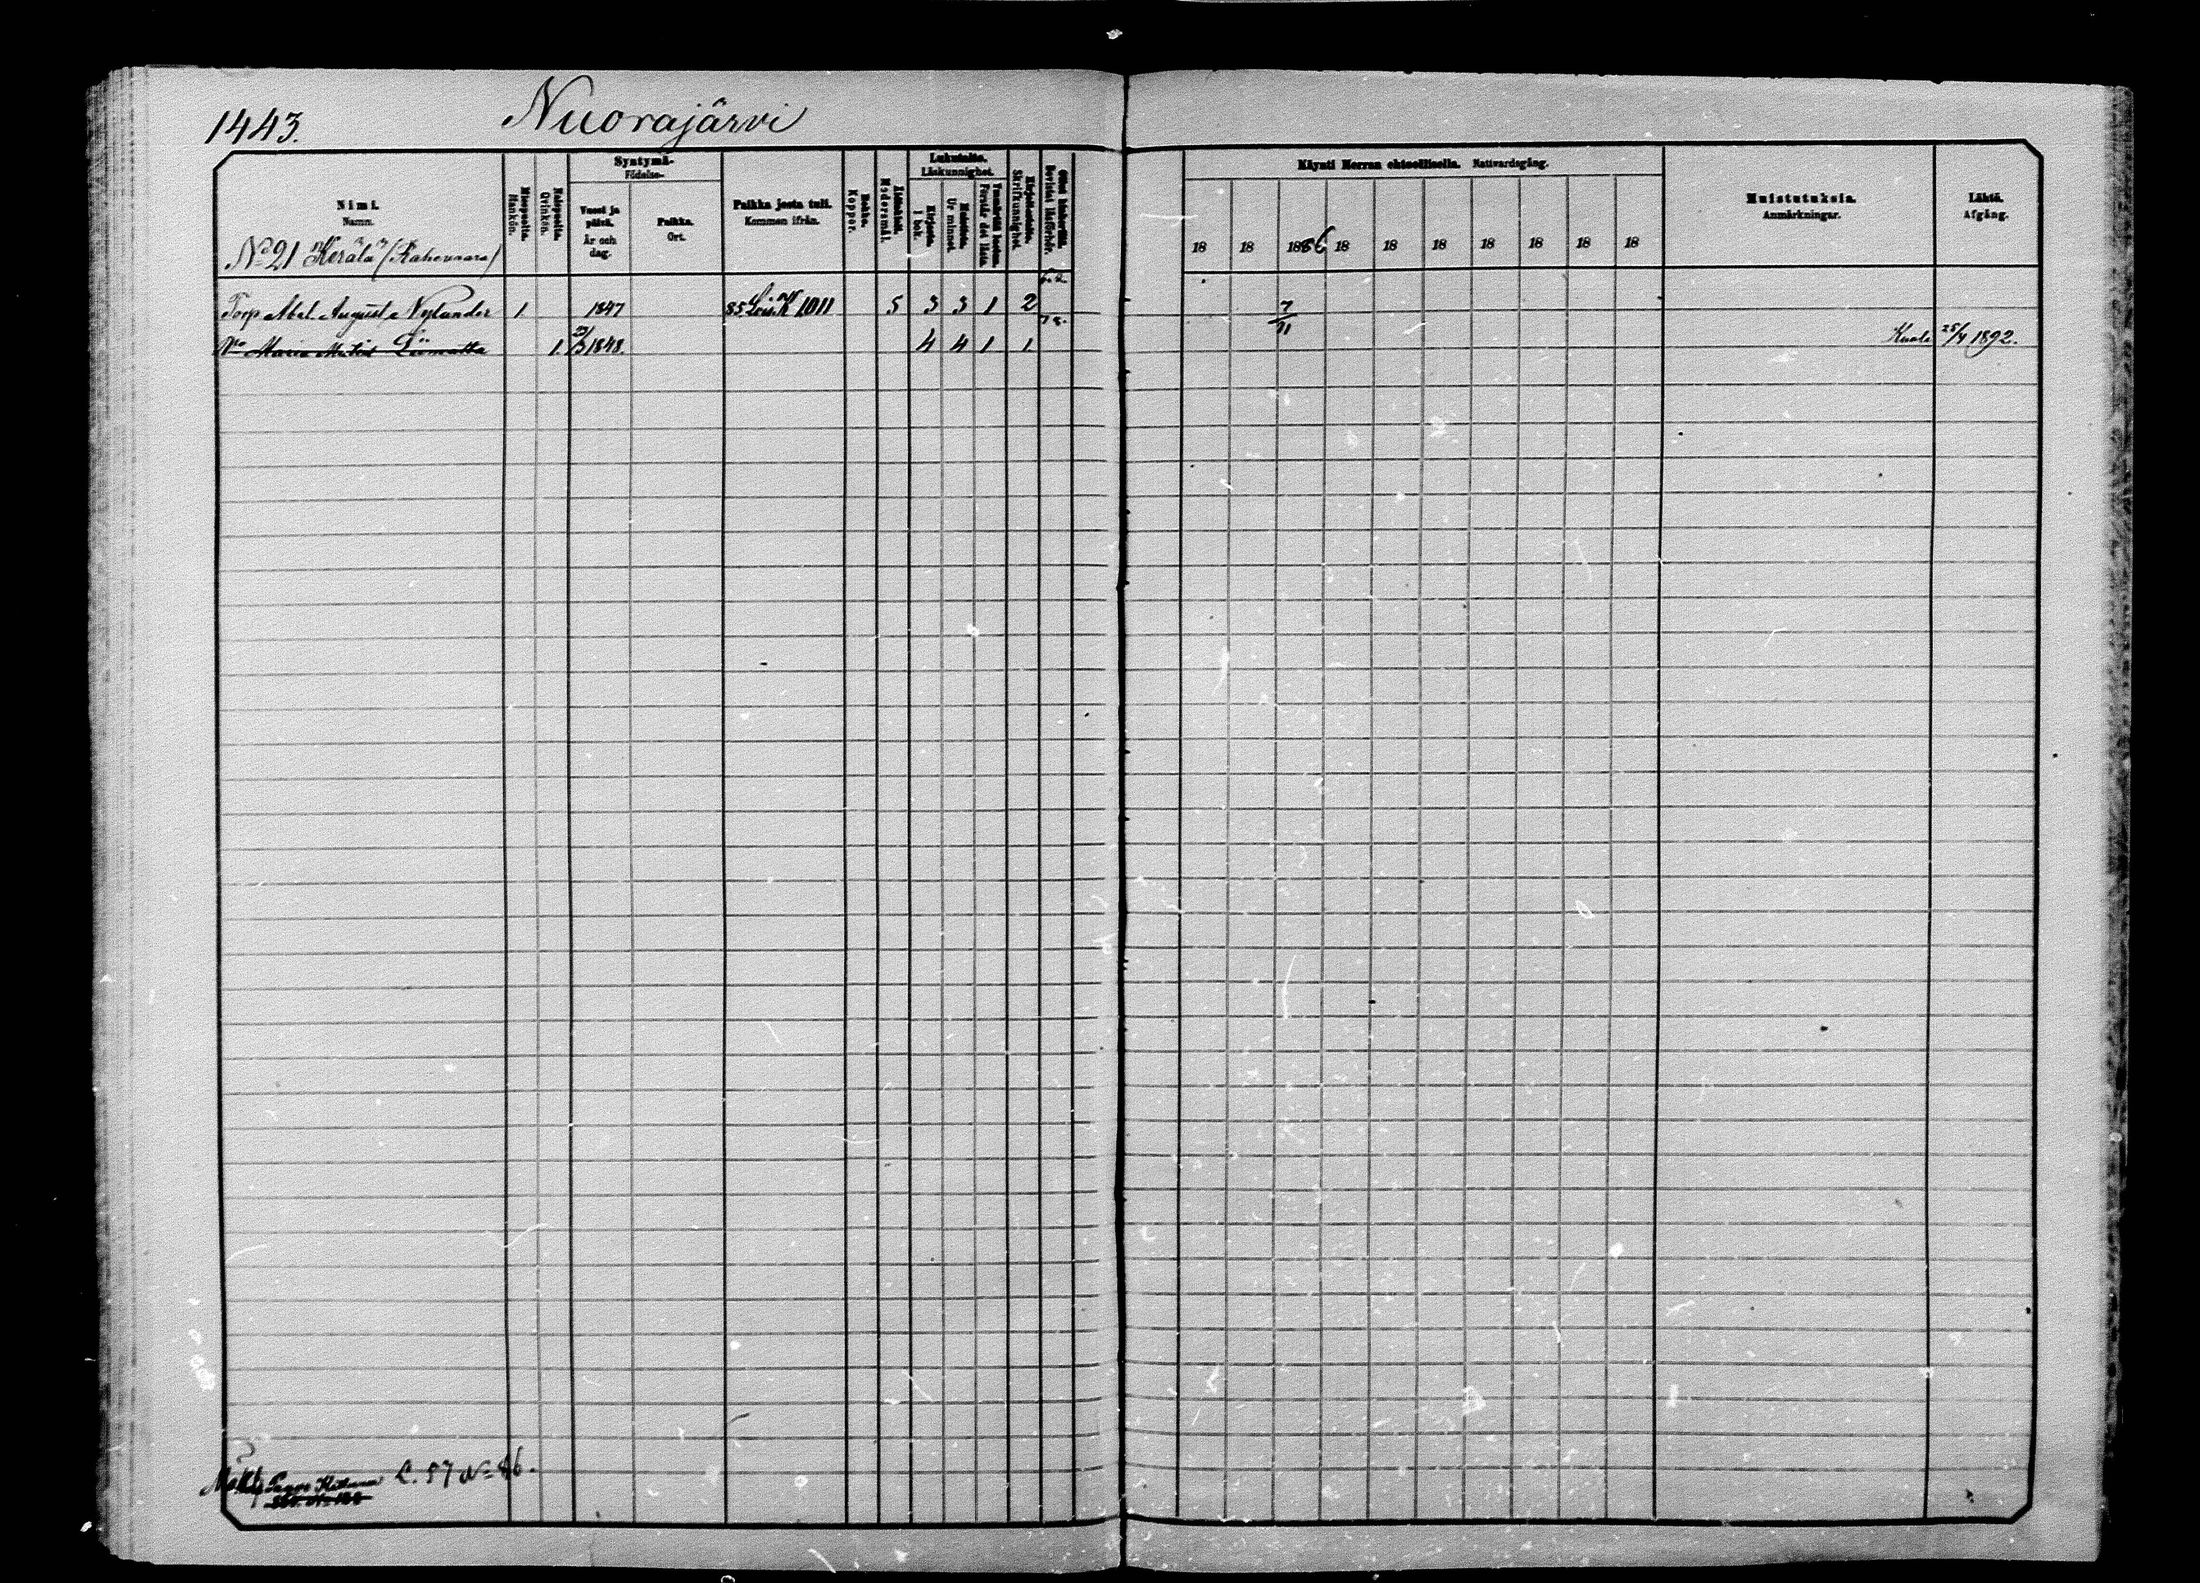 1443.
Nuorajärvi
Nimi.
Namn.
Miespuolta.
Mankön.
Naispuolta.
Qvinkön.
Syntymä-
Födelse-
Vuosi ja päivä.
År och dag.
Paikka.
Ort.
Paikka josta tuli.
Kommen ifrån.
Rokko.
Koppor.
Äidinkieli.
Modersmål.
Lukutaito.
Läskunnighet.
Kirjasta.
I bok.
Muistista.
Ur minnet.
Ymmärtää lukem.
Förstår det lästa.
Kirjoitustaito.
Skrifkunnighet.
Ollut lukusilla.
Bevistat läsförhör.
Käynti Herran ehtoollisella. Nattvardsgång.
18 18 1886 18 18 18 18 18 18 18
Muistutuksia.
Anmärkningar.
Lähtö.
Afgång.
No 21 "Kerälä" (Rahenvaara)
Torp. Abel August Nylander 1. 1847 85 1011 5 3 3 1 2 7/11
Vo Maria Liimatta 1. 1848. 4 4 1 1 Kuoli 25/4 1892.
C. 57 No 46.